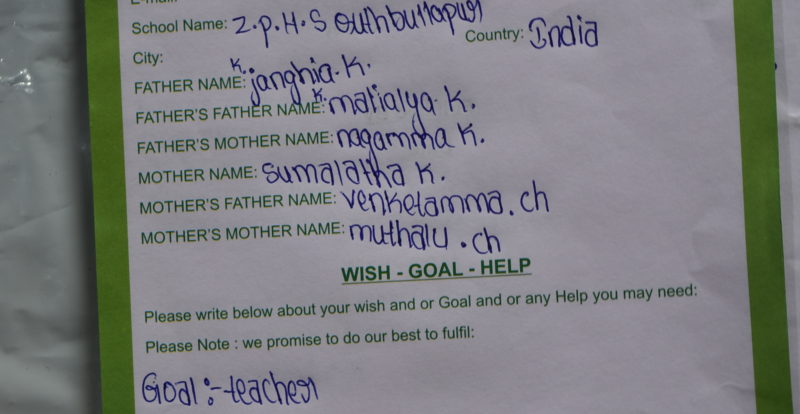 School Name: Z.P.H.S Outhbullapur
Country: India
City:
FATHER NAME: K. janghia.K.
FATHER'S FATHER NAME: K. matialya K.
FATHER'S MOTHER NAME: nagamma K.
MOTHER NAME: sumalatha K.
MOTHER'S FATHER NAME: venketamma.ch
MOTHER'S MOTHER NAME: muthalu.ch
WISH - GOAL - HELP
Please write below about your wish and or Goal and or any Help you may need:
Please Note : we promise to do our best to fulfil:
Goal :- teacher